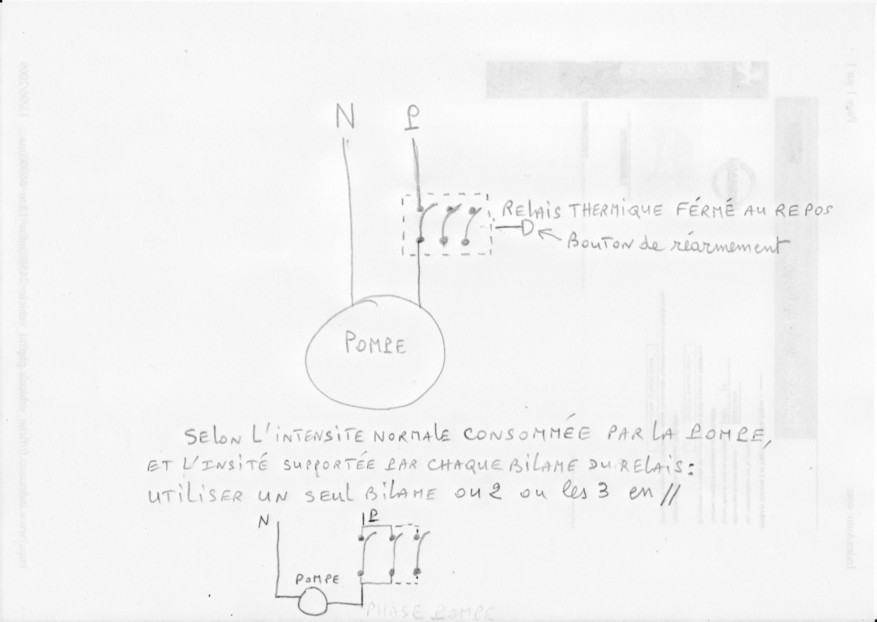 N P
RELAIS THERMIQUE FÉRMÉ AU REPOS
BOUTON de réarmement
POMPE
SELON L'INTENSITE NORMALE CONSOMMÉE PAR LA POMPE,
ET L'INSITÉ SUPPORTÉE PAR CHAQUE BILAME DU RELAIS:
UTILISER UN SEUL BILAME OU 2 OU les 3 en //
N P
POMPE
PHASE POMPE